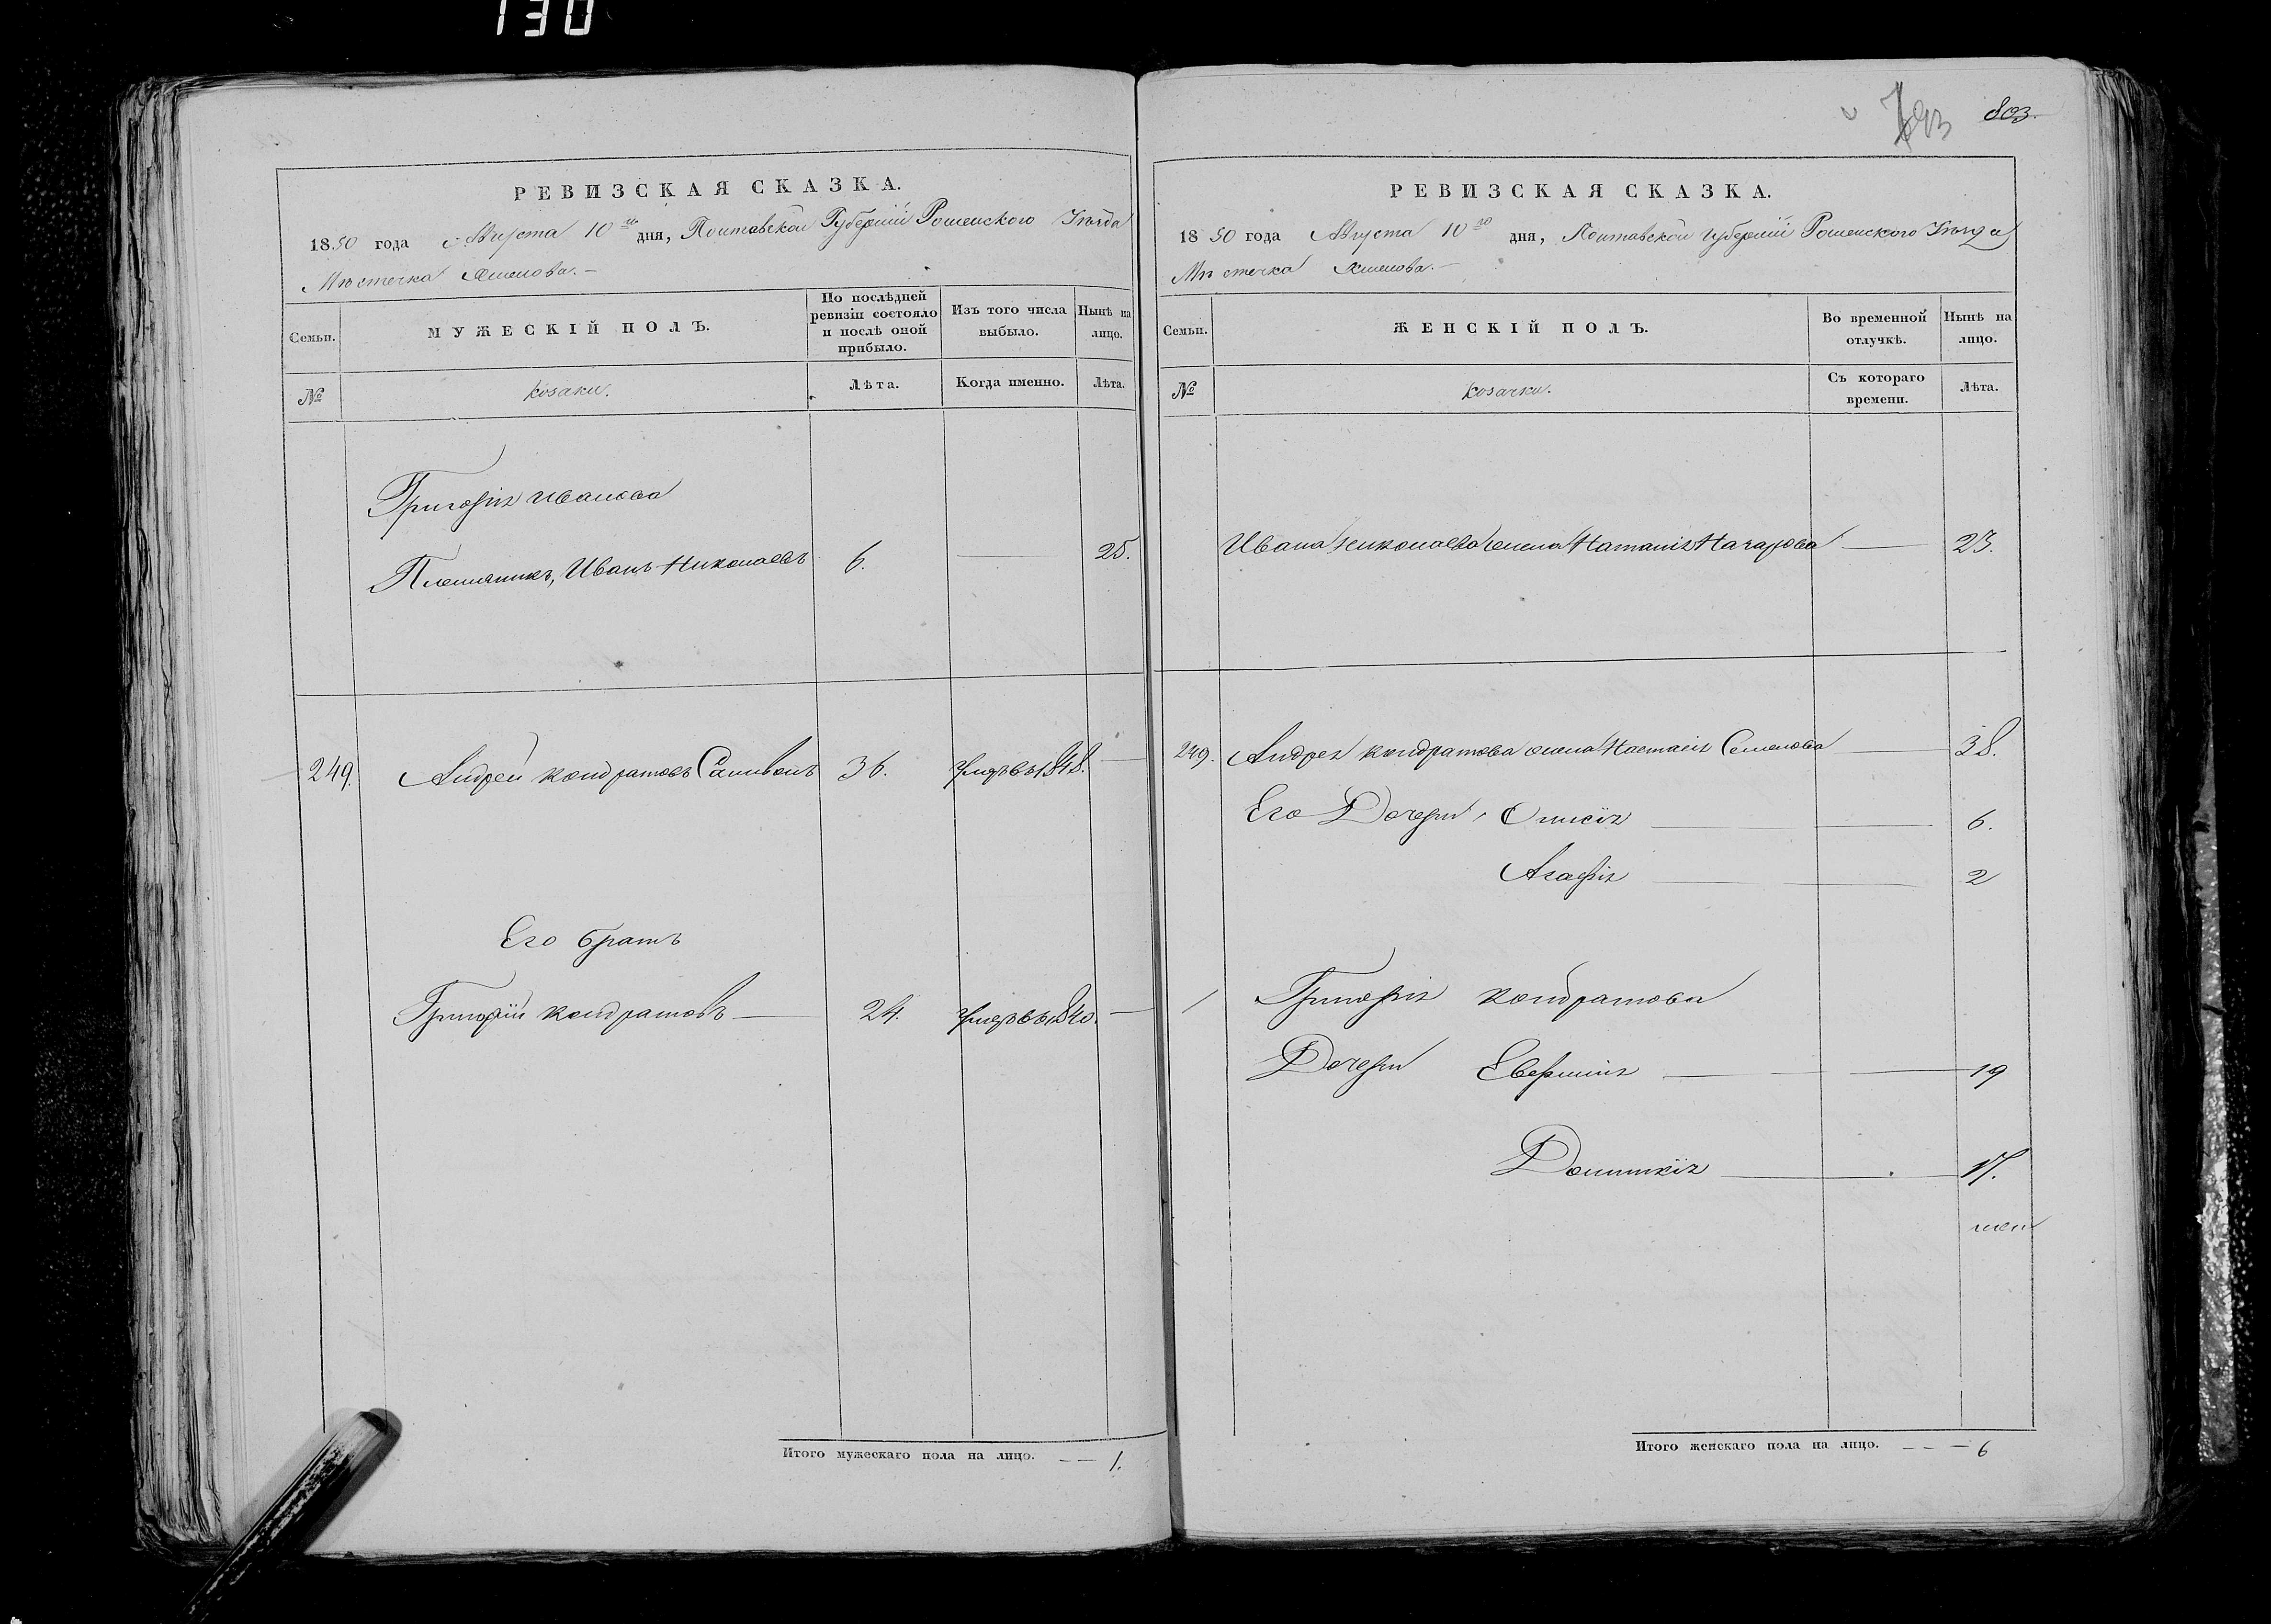 130
803.
РЕВИЗСКАЯ СКАЗКА.
1850 года Августа 10 дня, Полтавской Губерніи Роменского Уѣзда
Мѣстечка
Семьи.
МУЖЕСКІЙ ПОЛЪ.
По послѣдней ревизіи состояло и послѣ оной прибыло.
Изъ того числа выбыло.
Нынѣ на лицо.
№
Козаки.
Лѣта.
Когда именно.
Лѣта.
Григорія Иванова
Племянникъ, Иванъ Николаевъ 6. — 25.
249. Андрей Кондратовъ 36. умеръ въ 1848. —
Его братъ
Григорій Кондратовъ — 24. умеръ въ 1840. —
Итого мужескаго пола на лицо. — — 1.
РЕВИЗСКАЯ СКАЗКА.
1850 года Августа 10 дня, Полтавской Губерніи Роменского Уѣзда
Мѣстечка
Семьи.
ЖЕНСКІЙ ПОЛЪ.
Во временной отлучкѣ.
Нынѣ на лицо.
№
Козачки.
Съ котораго времени.
Лѣта.
Ивана Николаева жена Наталія — 23.
249. Андрея Кондратова жена Настасія Семенова — 38.
Его Дочери, — 6.
Агафія — 2
Григорія Кондратова
Дочери — 19
Домникія — 17.
Итого женскаго пола на лицо. — — — 6